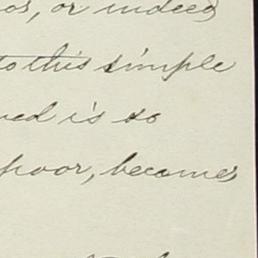 or indeed
to this simple
is so
poor, becomes